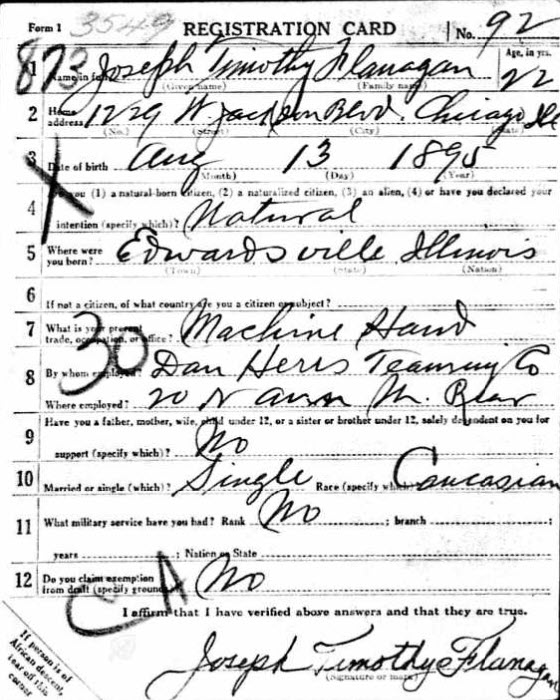 Form 1 3549 REGISTRATION CARD No. 92
873
1 Name in full Joseph Timothy Flanagan Age, in yrs. 22
(Given name) (Family name)
2 Home address 1229 W. Jackson Blvd. Chicago Ills
(No.) (Street) (City) (State)
3 Date of birth Aug 13 1895
(Month) (Day) (Year)
X
Are you (1) a natural-born citizen, (2) a naturalized citizen, (3) an alien, (4) or have you declared your
4 intention (specify which)? Natural
5 Where were you born? Edwardsville Illinois
(Town) (State) (Nation)
6 If not a citizen, of what country are you a citizen or subject?
7 What is your present trade, occupation, or office? Machine Hand
30
8 By whom employed? Dan Herrs Teaming Co
Where employed? 20 N Ann St. Rear
9 Have you a father, mother, wife, child under 12, or a sister or brother under 12, solely dependent on you for
support (specify which)? No
10 Married or single (which)? Single Race (specify which) Caucasian
11 What military service have you had? Rank No ; branch ;
years ; Nation or State
12 Do you claim exemption from draft (specify grounds)? No
CA
I affirm that I have verified above answers and that they are true.
Joseph Timothy Flanagan
(Signature or mark)
If person is of
African descent,
tear off this
corner